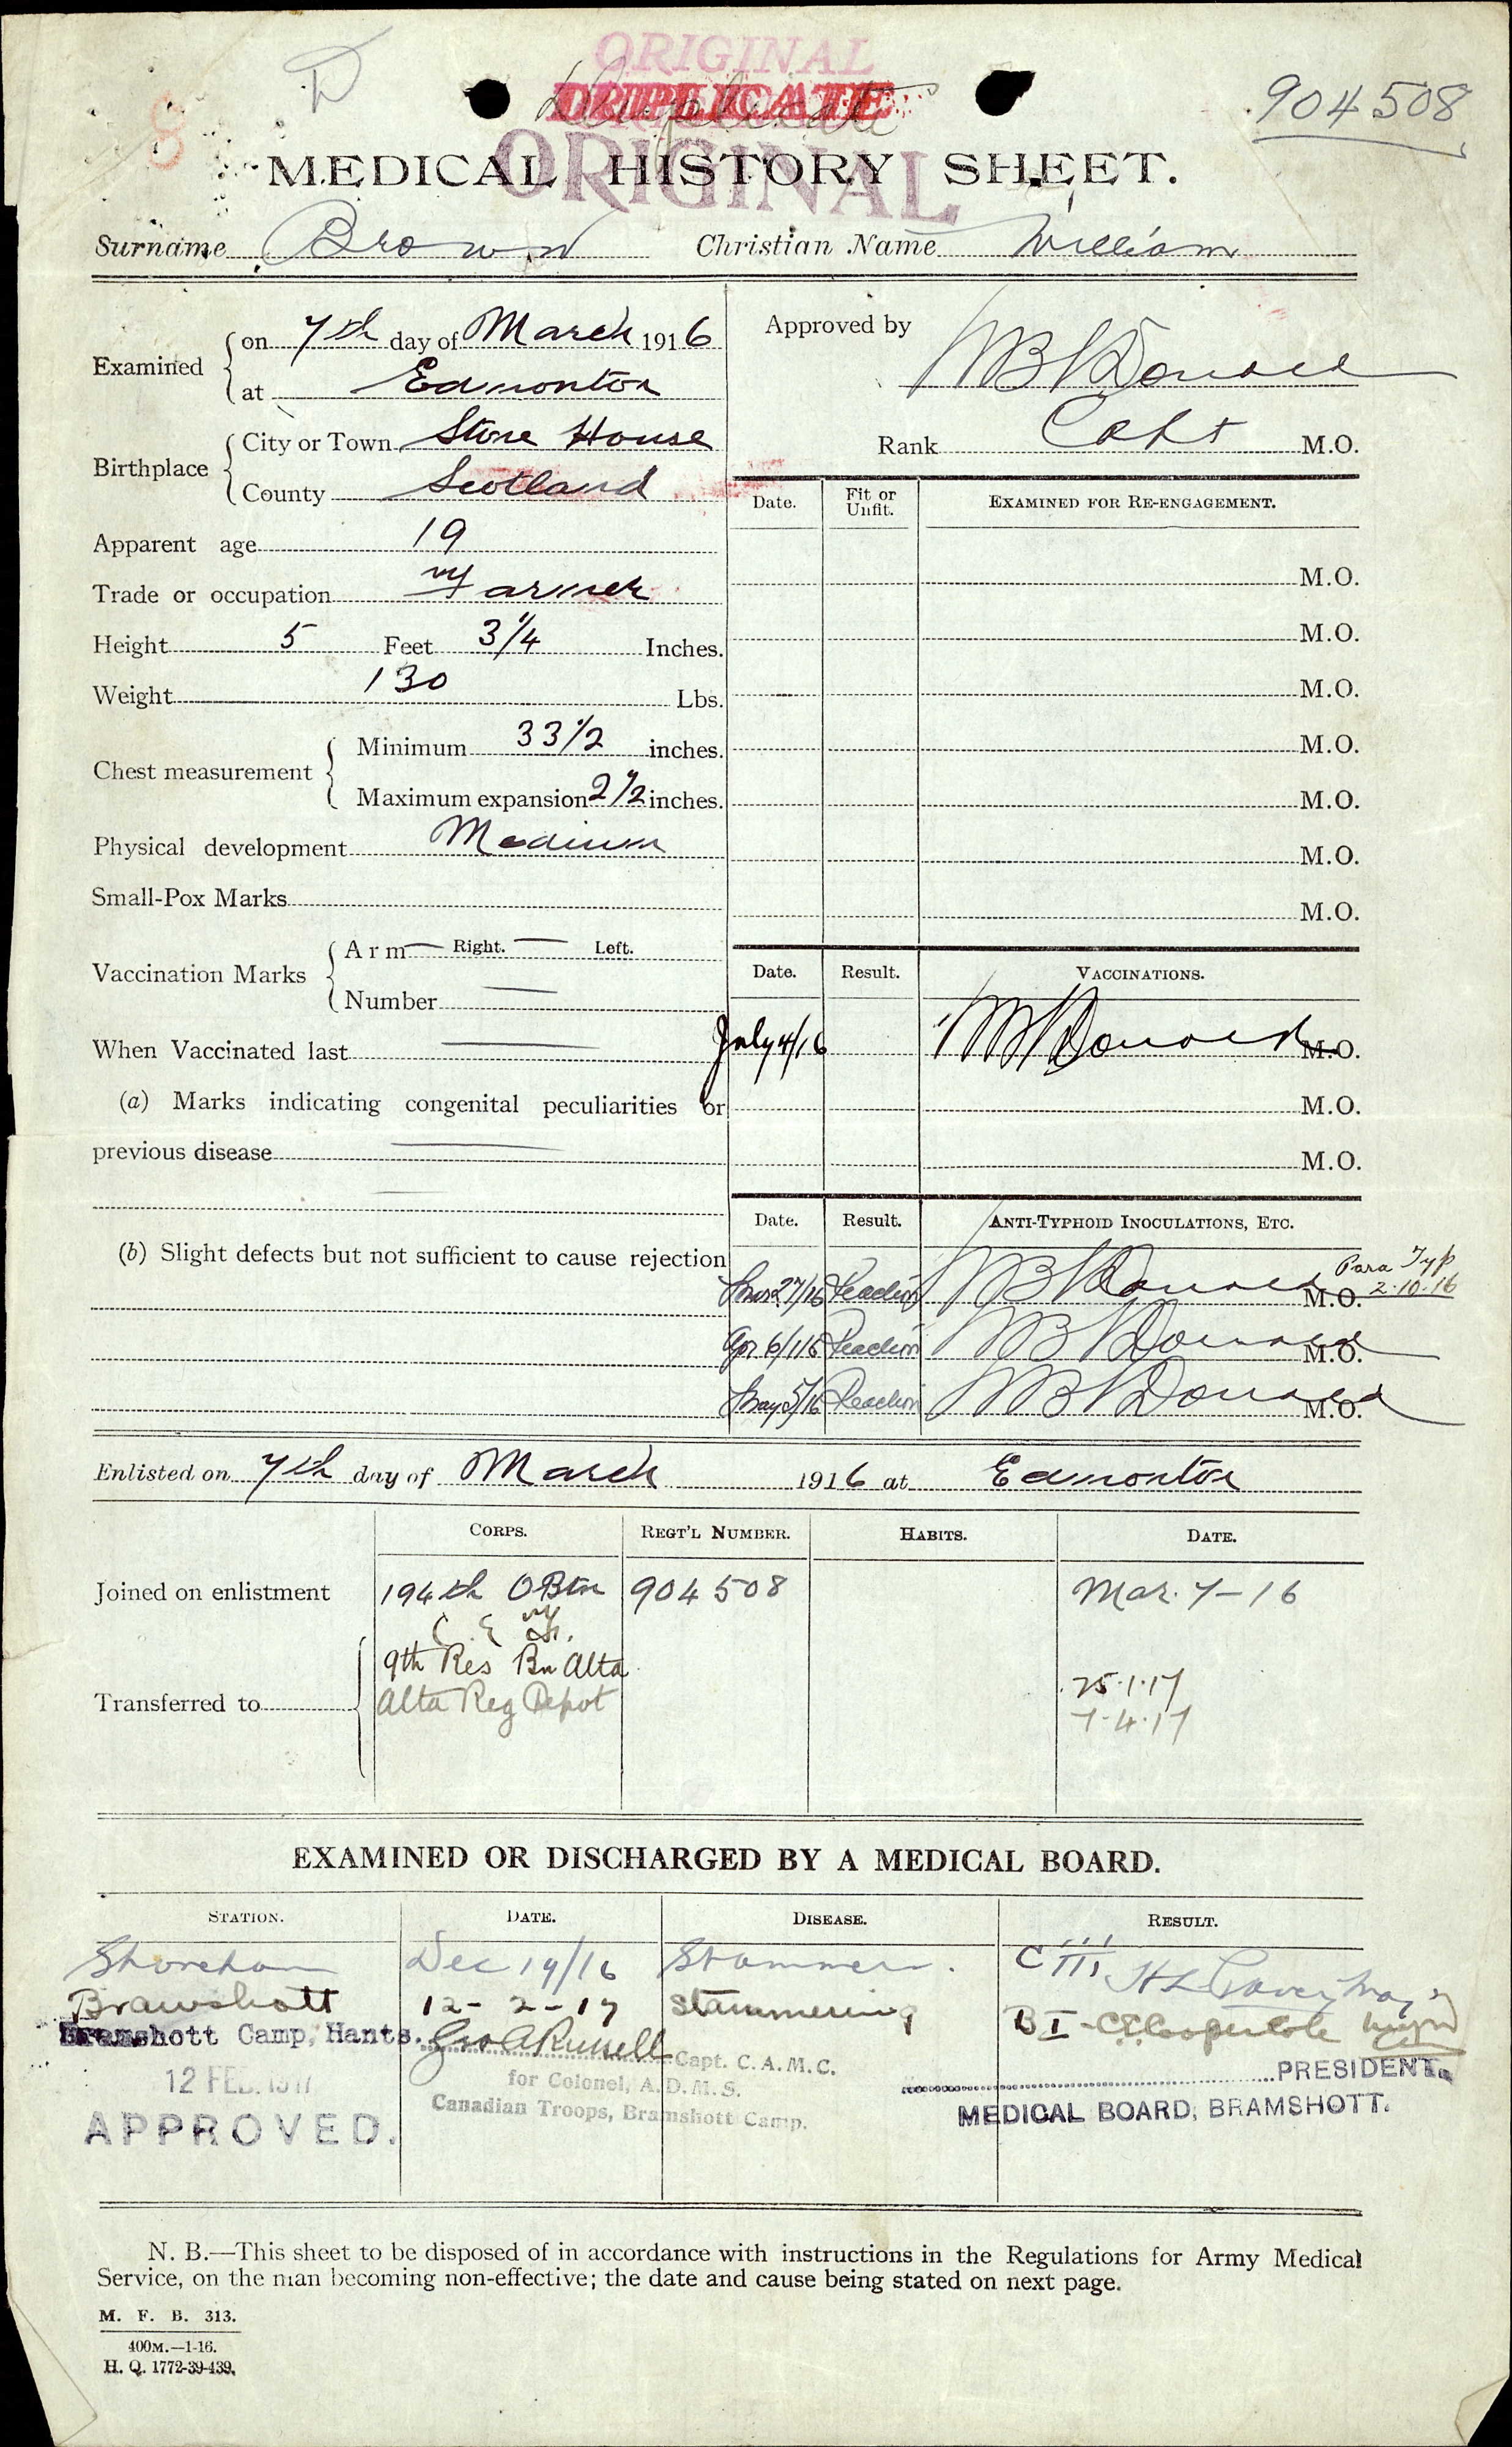 D
ORIGINAL
Duplicate
904508
ORIGINAL
MEDICAL HISTORY SHEET.
Surname Brown Christian Name William
Examined on 7th day of March 1916
at Edmonton
Birthplace City or Town Stone House
County Scotland
Apparent age 19
Trade or occupation Farmer
Height 5 Feet 3 1/4 Inches.
Weight 130 Lbs.
Chest measurement Minimum 33 1/2 inches.
Maximum expansion 2 1/2 inches.
Physical development Medium
Small-Pox Marks
Vaccination Marks Arm — Right. — Left.
Number —
When Vaccinated last —
(a) Marks indicating congenital peculiarities or
previous disease —
—
(b) Slight defects but not sufficient to cause rejection
Approved by
Rank Capt M.O.
Date. Fit or Unfit. EXAMINED FOR RE-ENGAGEMENT.
M.O.
M.O.
M.O.
M.O.
M.O.
M.O.
M.O.
Date. Result. VACCINATIONS.
July 4/16 M.O.
M.O.
M.O.
Date. Result. ANTI-TYPHOID INOCULATIONS, ETC.
Para Typ
27/16 Reaction M.O. 2.10.16
Apr 6/16 Reaction M.O.
May 5/16 Reaction M.O.
Enlisted on 7th day of March 1916 at Edmonton
CORPS. REGT'L NUMBER. HABITS. DATE.
Joined on enlistment 194th OBtn 904508 Mar. 7-16
C.E.F.
9th Res Bn Alta 25.1.17
Transferred to Alta Reg Depot 7.4.17
EXAMINED OR DISCHARGED BY A MEDICAL BOARD.
STATION. DATE. DISEASE. RESULT.
Shoreham Dec 19/16 Stammer. C III
Bramshott 12-2-17 Stammering B I
Bramshott Camp, Hants. Geo A Russell Capt. C.A.M.C.
12 FEB. 1917 for Colonel, A.D.M.S. PRESIDENT.
APPROVED. Canadian Troops, Bramshott Camp. MEDICAL BOARD, BRAMSHOTT.
N. B.—This sheet to be disposed of in accordance with instructions in the Regulations for Army Medical
Service, on the man becoming non-effective; the date and cause being stated on next page.
M. F. B. 313.
400M.—1-16.
H. Q. 1772-39-439.